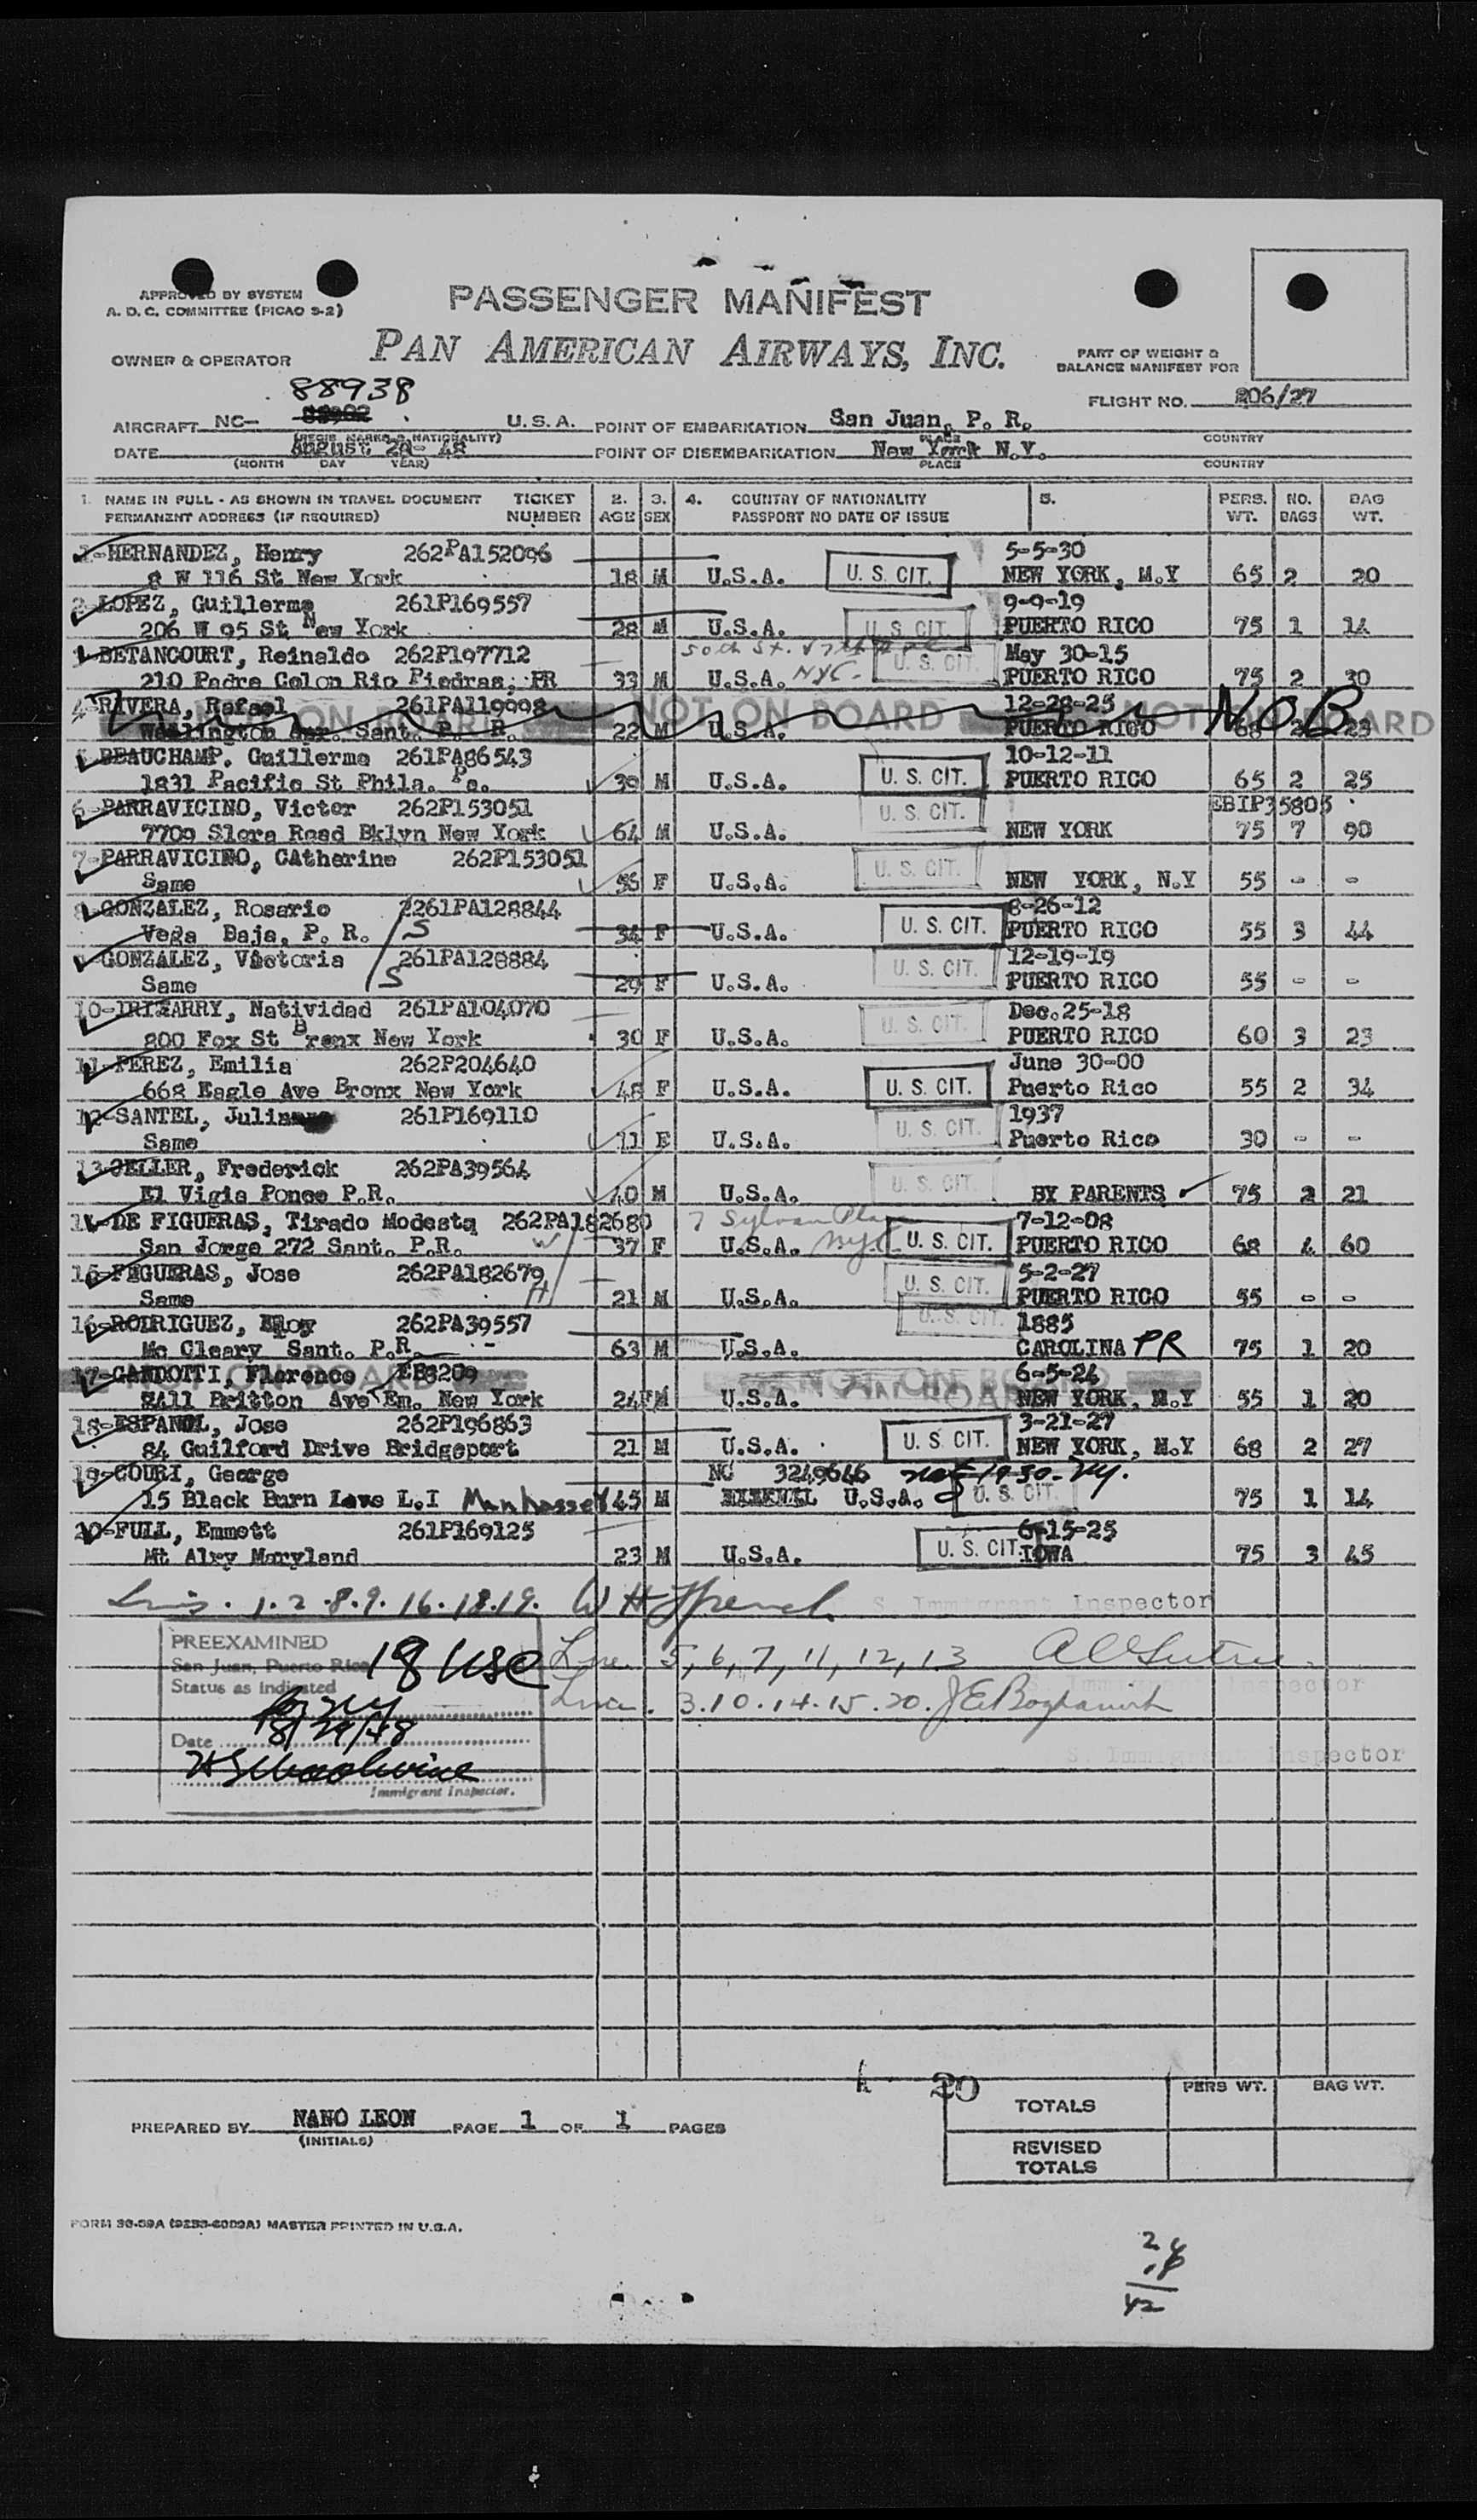 APPROVED BY SYSTEM
A. D. C. COMMITTEE (PICAO S-2)
PASSENGER MANIFEST
OWNER & OPERATOR
PAN AMERICAN AIRWAYS, INC.
PART OF WEIGHT &
BALANCE MANIFEST FOR
88938
FLIGHT NO. 206/27
AIRCRAFT NC- U.S.A. POINT OF EMBARKATION San Juan, P. R.
(REGIS. MARKS & NATIONALITY) PLACE COUNTRY
DATE August 48 POINT OF DISEMBARKATION New York N.Y.
(MONTH DAY YEAR) PLACE COUNTRY
1. NAME IN FULL - AS SHOWN IN TRAVEL DOCUMENT TICKET 2. 3. 4. COUNTRY OF NATIONALITY 5. PERS. NO. BAG
PERMANENT ADDRESS (IF REQUIRED) NUMBER AGE SEX PASSPORT NO DATE OF ISSUE WT. BAGS WT.
1-HERNANDEZ, Henry 262PA152096 5-5-30
8 W 116 St New York 18 M U.S.A. U. S. CIT. NEW YORK, N.Y 65 2 20
2-LOPEZ, Guillermo 261P169557 9-9-19
206 W 95 St New York 28 M U.S.A. U. S. CIT. PUERTO RICO 75 1 14
3-BETANCOURT, Reinaldo 262P197712 50th St. May 30-15
210 Padre Colon Rio Piedras, PR 33 M U.S.A. NYC. U. S. CIT. PUERTO RICO 75 2 30
4-RIVERA, Rafael 261PA119998 NOT ON BOARD 12-28-25 NOB
Sant. P. R. 22 M U.S.A. PUERTO RICO 68 2 23
5-BEAUCHAMP. Guillermo 261PA86543 10-12-11
1831 Pacific St Phila. Pa. 39 M U.S.A. U. S. CIT. PUERTO RICO 65 2 25
6-PARRAVICINO, Victor 262P153051 U. S. CIT. EBIP35805
7709 Slora Road Bklyn New York 64 M U.S.A. NEW YORK 75 7 90
7-PARRAVICINO, CAtherine 262P153051
Same 56 F U.S.A. U. S. CIT. NEW YORK, N.Y 55 - -
8-GONZALEZ, Rosario 2261PA128844 8-26-12
Vega Baja, P. R. S 34 F U.S.A. U. S. CIT. PUERTO RICO 55 3 44
9-GONZALEZ, Victoria 261PA128884 12-19-19
Same S 29 F U.S.A. U. S. CIT. PUERTO RICO 55 - -
10-IRIZARRY, Natividad 261PA104070 Dec.25-18
800 Fox St Bronx New York 30 F U.S.A. U. S. CIT. PUERTO RICO 60 3 23
11-PEREZ, Emilia 262P204640 June 30-00
668 Eagle Ave Bronx New York 48 F U.S.A. U. S. CIT. Puerto Rico 55 2 34
12-SANTEL, 261P169110 1937
Same 11 F U.S.A. U. S. CIT. Puerto Rico 30 - -
13-OELLER, Frederick 262PA39564
El Vigia Ponce P.R. 40 M U.S.A. U. S. CIT. BY PARENTS 75 2 21
14-DE FIGUERAS, Tirado Modesta 262PA182680 7 Sylvan 7-12-08
San Jorge 272 Sant. P.R. W 37 F U.S.A. U. S. CIT. PUERTO RICO 68 4 60
15-FIGUERAS, Jose 262PA182679 5-2-27
Same H 21 M U.S.A. U. S. CIT. PUERTO RICO 55 - -
16-RODRIGUEZ, Eloy 262PA39557 U. S. CIT. 1885
Mc Cleary Sant. P.R. 63 M U.S.A. CAROLINA PR 75 1 20
17-GANDOTTI, Florence EB8209 NOT ON BOARD 6-5-24
8411 Britton Ave Em. New York 24 F U.S.A. NEW YORK, N.Y 55 1 20
18-ESPANOL, Jose 262P196863 3-21-27
84 Guilford Drive Bridgeport 21 M U.S.A. U. S. CIT. NEW YORK, N.Y 68 2 27
19-COURI, George NC 3249646 1930-NY.
15 Black Burn Lave L.I Manhasset 45 M U.S.A. U. S. CIT. 75 1 14
20-FULL, Emmett 261P169125 6-15-25
Mt Airy Maryland 23 M U.S.A. U. S. CIT. IOWA 75 3 45
1.2.8.9.16.18.19. W H S. Immigrant Inspector
PREEXAMINED
San Juan, Puerto Rico 18 USC
5, 6, 7, 11, 12, 13
Status as indicated
3.10.14.15.20.
Date 8/29/48
S. Immigrant Inspector
Immigrant Inspector.
20
PERS WT. BAG WT.
TOTALS
PREPARED BY NANO LEON PAGE 1 OF 1 PAGES
(INITIALS)
REVISED
TOTALS
FORM 30-59A MASTER PRINTED IN U.S.A.
42